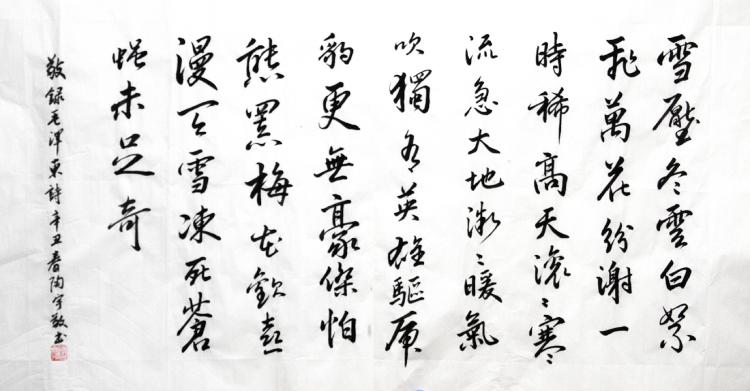 雪壓冬雲白絮
飛萬花紛謝一
時稀高天滾〻寒
流急大地微〻暖氣
吹獨有英雄驅虎
豹更無豪傑怕
熊羆梅花歡喜
漫天雪凍死蒼
蠅未足奇
敬錄毛澤東詩辛丑春陶宇敬書